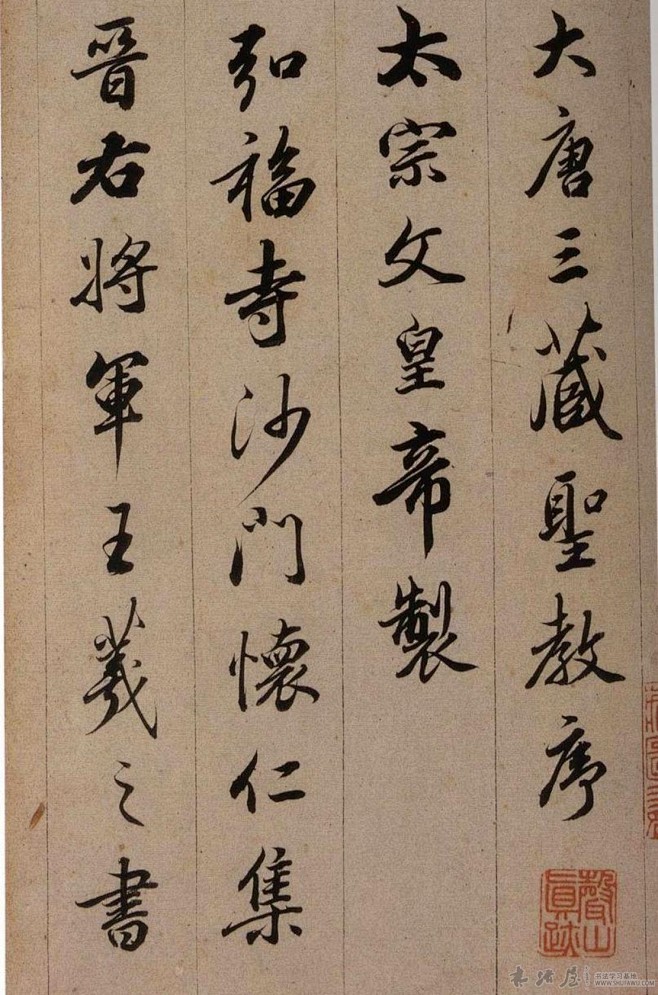 大唐三藏聖教序
太宗文皇帝製
弘福寺沙門懷仁集
晉右將軍王羲之書
書法學习基地
WWW.SHUFAWU.COM